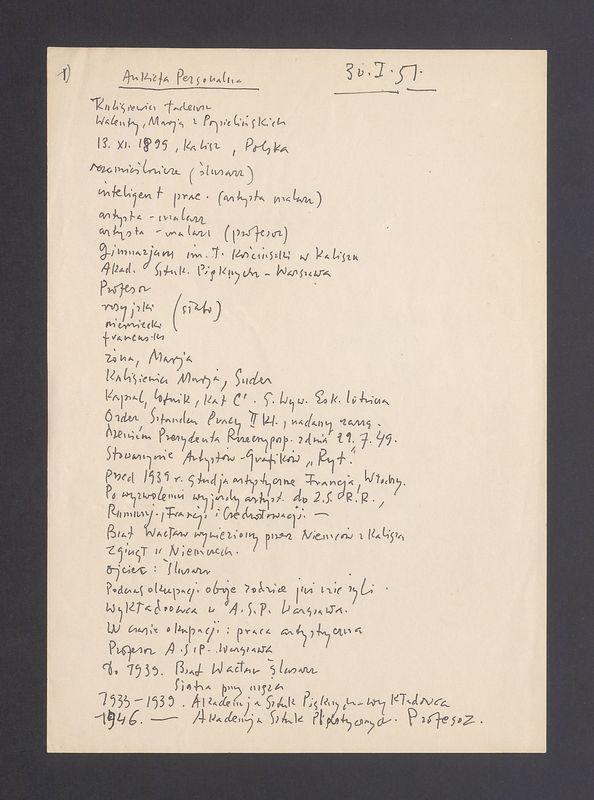 1) Ankieta Personalna 30.I.51.
Kulisiewicz Tadeusz
Walenty, Marja z Popielińskich
13. XI. 1899, Kalisz, Polska
rzemieślnicze (ślusarz)
inteligent prac. (artysta malarz)
artysta - malarz
artysta - malarz (profesor)
Gimnazjum im. T. Kościuszki w Kaliszu
Akad. Sztuk. Pięknych - Warszawa
Profesor
rosyjski (słabo)
niemiecki
francuski
żona, Marja
Kulisiewicz Marja, Suder
Kapral, lotnik, Kat C. 5. Wyw. Esk. lotnicza
Order Sztandar Pracy II Kl., nadany zarzą-
dzeniem Prezydenta Rzeczyposp. z dnia 22.7.49.
Stowarzysznie Artystów-Grafików "Ryt".
Przed 1939 r. studja artystyczne Francja, Włochy.
Po wyzwoleniu wyjazdy artyst. do Z.S.R.R.,
Rumunji, Francji i Czechosłowacji. —
Brat Wacław wywieziony przez Niemców z Kalisza
zginął w Niemczech.
ojciec: ślusarz
Podczas okupacji oboje rodzice już nie żyli.
Wykładowca w A.S.P. Warszawa.
W czasie okupacji: praca artystyczna
Profesor A.S.P. Warszawa
Do 1939. Brat Wacław Ślusarz
Siostra przy mężu
1933-1939. Akademja Sztuk Pięknych-wykładowca
1946. — Akademja Sztuk Plastycznych. Profesor.